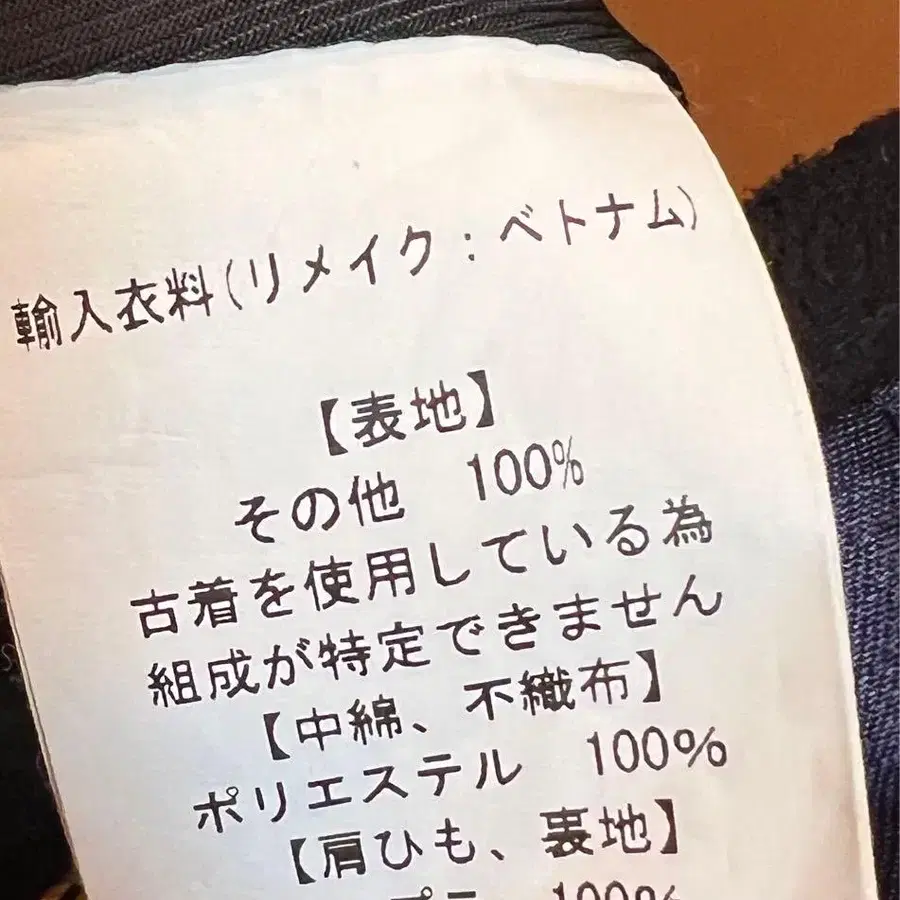 輸入衣料(リメイク:ベトナム)
【表地】
その他 100%
古着を使用している為
組成が特定できません
【中綿、不織布】
ポリエステル 100%
【肩ひも、裏地】
100%